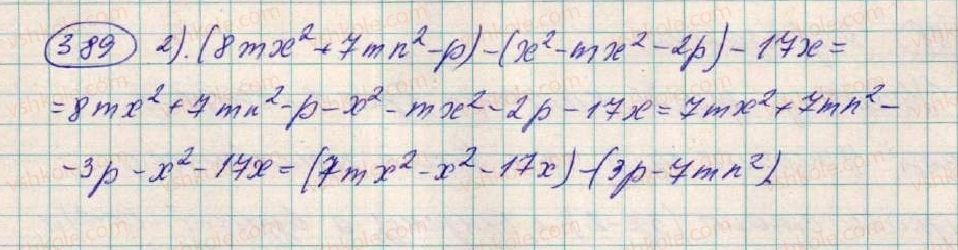 389 2). (8mx² + 7mn² - p) - (x² - mx² - 2p) - 17x =
= 8mx² + 7mn² - p - x² - mx² - 2p - 17x = 7mx² + 7mn² -
- 3p - x² - 17x = (7mx² - x² - 17x) - (3p - 7mn²).